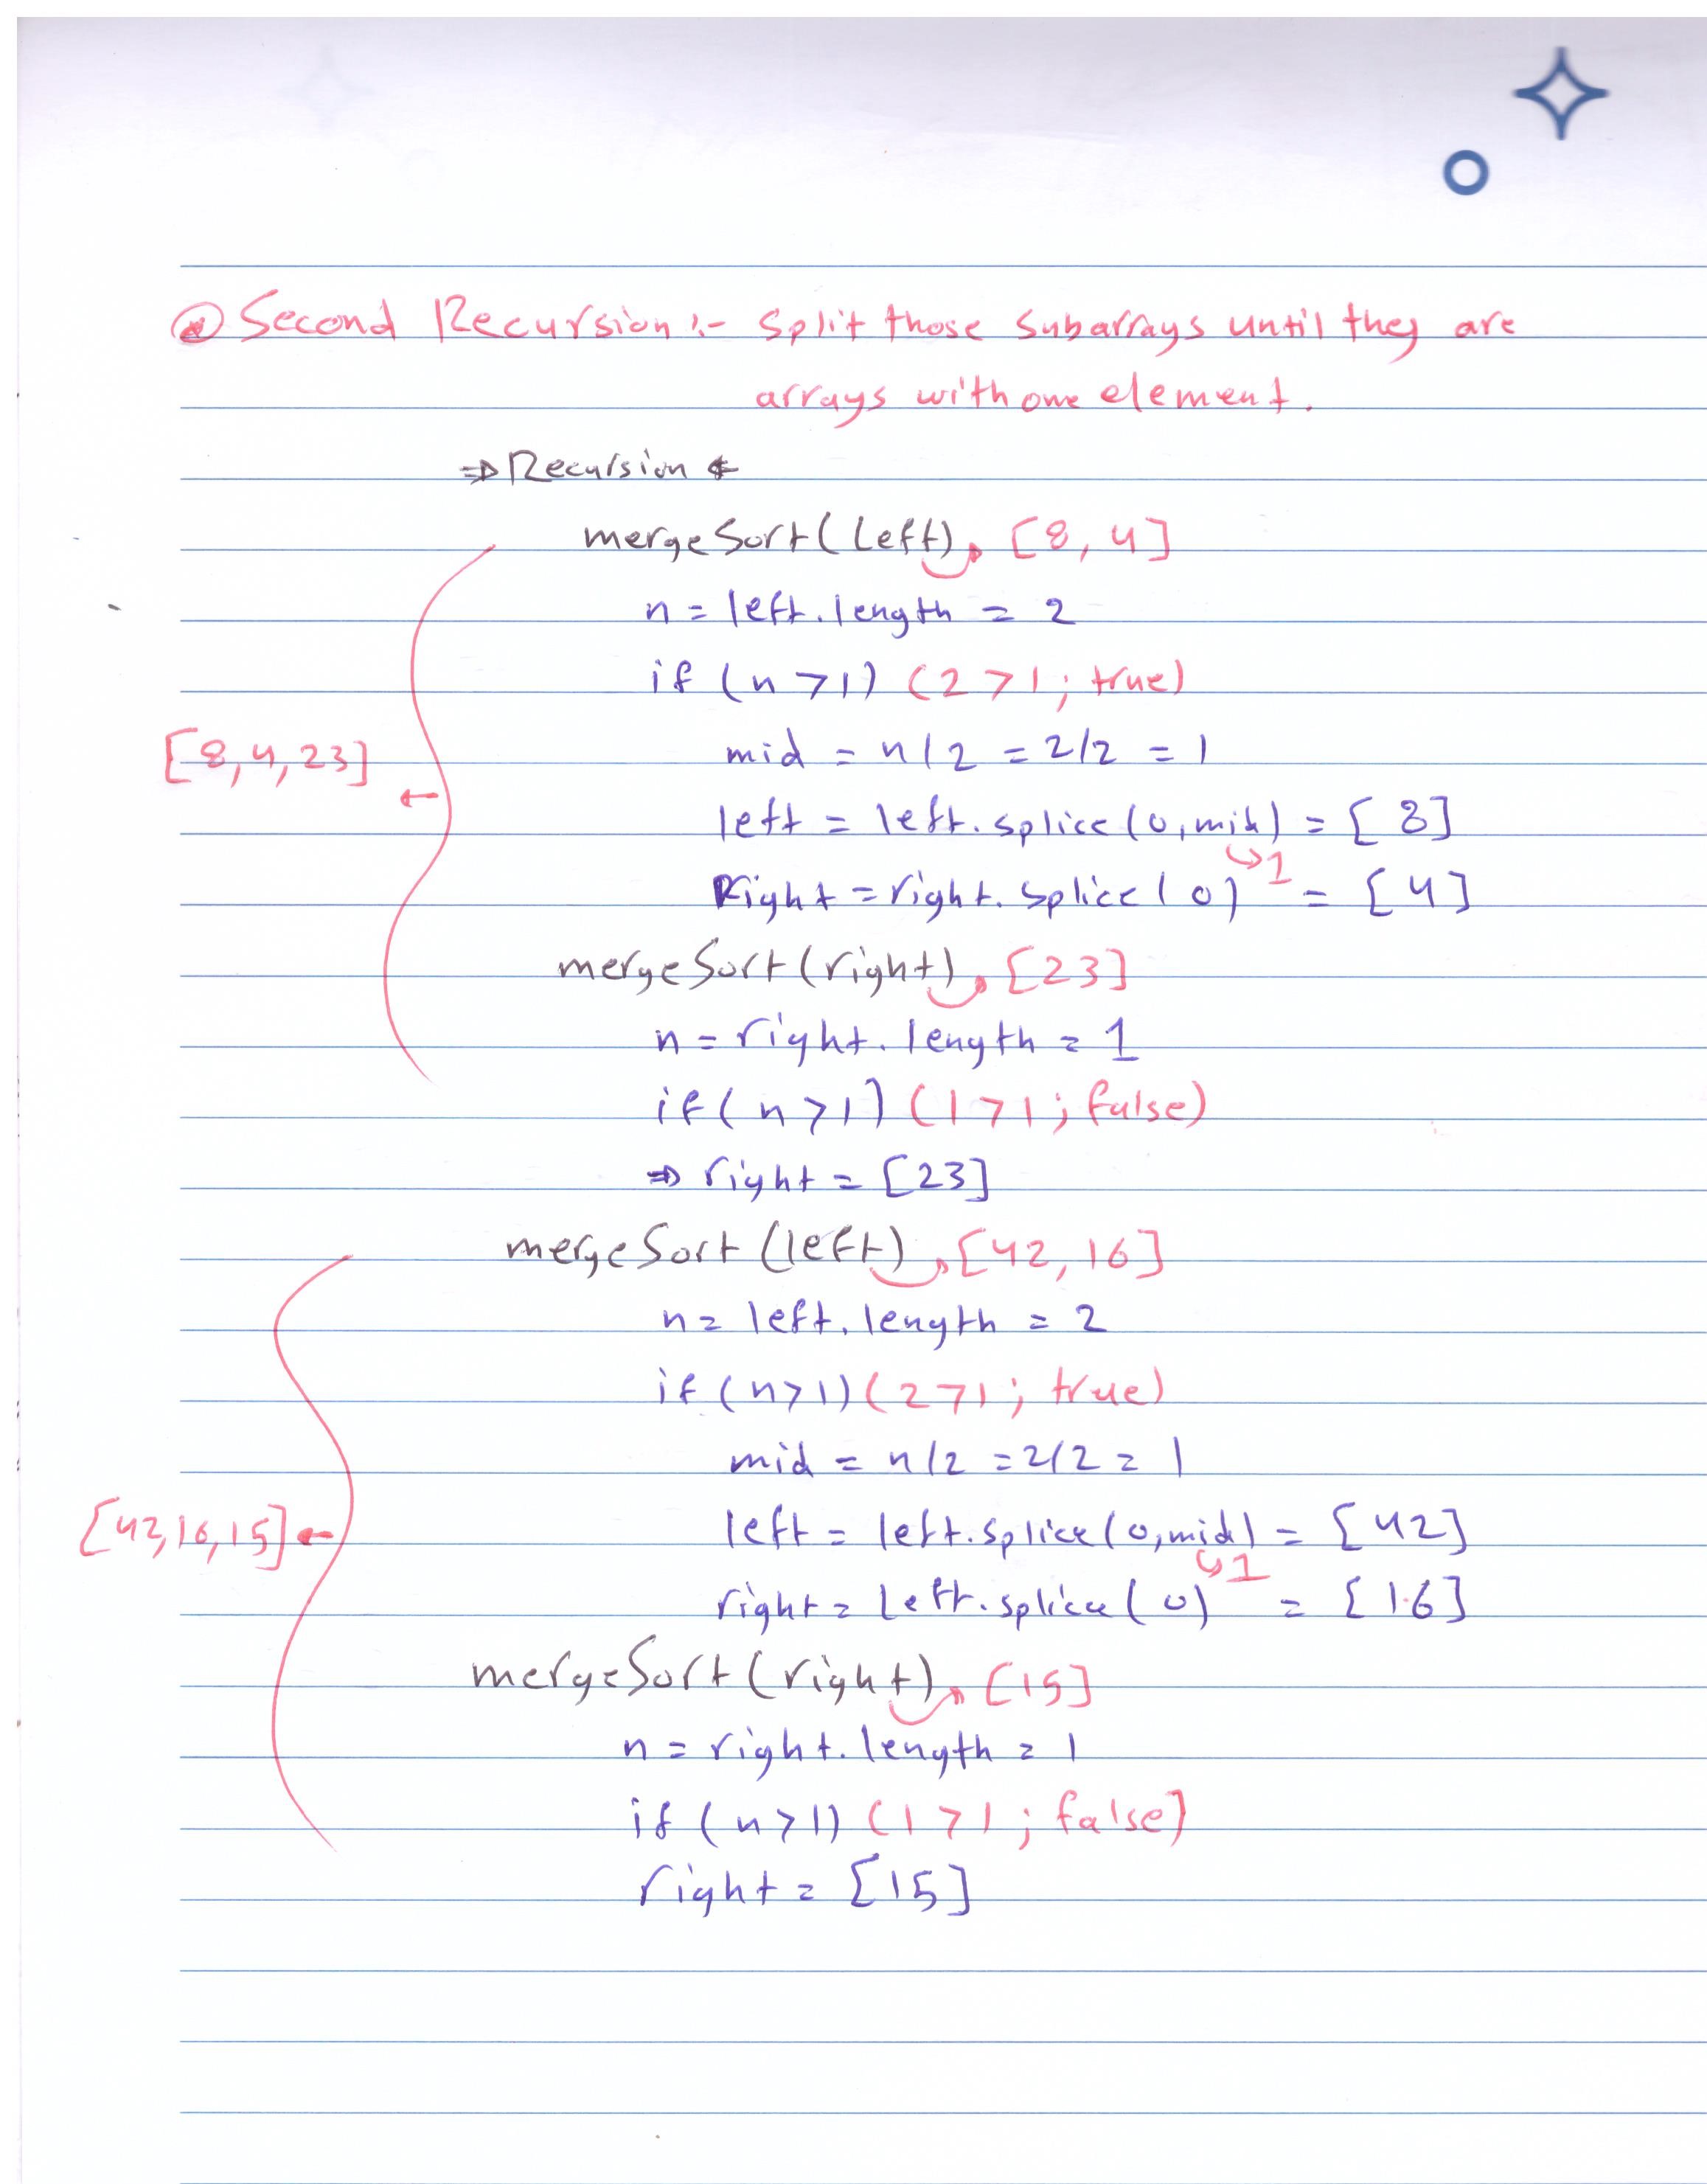 Second Recursion :- split those subarrays until they are
arrays with one element.
⇒ Recursion ⇐
mergeSort(left) [8, 4]
n = left.length = 2
if (n>1) (2>1; true)
mid = n/2 = 2/2 = 1
left = left.splice(0,mid) = [8]
1
Right = right.splice(0) = [4]
[8,4,23] ←
mergeSort(right) [23]
n = right.length = 1
if(n>1) (1>1; false)
⇒ right = [23]
mergeSort (left) [42, 16]
n = left.length = 2
if (n>1) (2>1; true)
mid = n/2 = 2/2 = 1
left = left.splice(0,mid) = [42]
1
right = left.splice(0) = [16]
[42,16,15] ←
mergeSort(right) [15]
n = right.length = 1
if (n>1) (1>1; false)
right = [15]